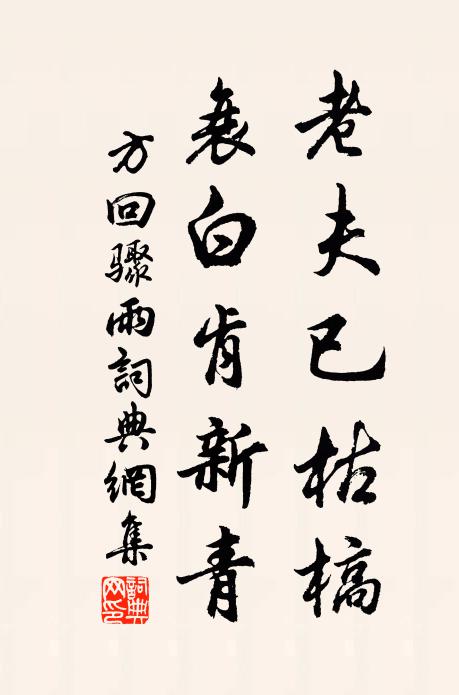 老夫已枯槁
衰白肯新青
方回驟雨詞典網集
詞典網印